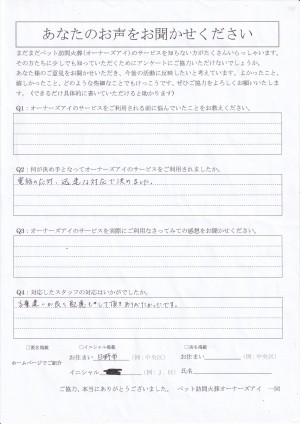 あなたのお声をお聞かせください
まだまだペット訪問火葬(オーナーズアイ)のサービスを知らない方がたくさんいらっしゃいます。
その方たちに少しでも知っていただくためにアンケートにご協力いただけないでしょうか。
あなた様のご意見をお聞かせいただき、今後の活動に反映したいと考えています。よかったこと、
嬉しかったこと、どのような些細なことでもけっこうです。ぜひご協力をよろしくお願いいたしま
す。(できるだけ具体的に書いていただけると助かります)
Q1:オーナーズアイのサービスをご利用される前に悩んでいたことをお教えください。
Q2:何が決め手となってオーナーズアイのサービスをご利用されましたか。
電話の応対、迅速な対応で決めました。
Q3:オーナーズアイのサービスを実際にご利用なさってみての感想をお聞かせください。
Q4:対応したスタッフの対応はいかがでしたか。
言葉遣いが良く配慮もして頂きありがたかったです。
□匿名掲載 □イニシャル掲載 □氏名掲載
ホームページでご紹介
お住まい 日野市 (例:中央区) お住まい (例:中央区)
イニシャル (例:J.H) 氏名
ご協力、本当にありがとうございました。 ペット訪問火葬オーナーズアイ 一同